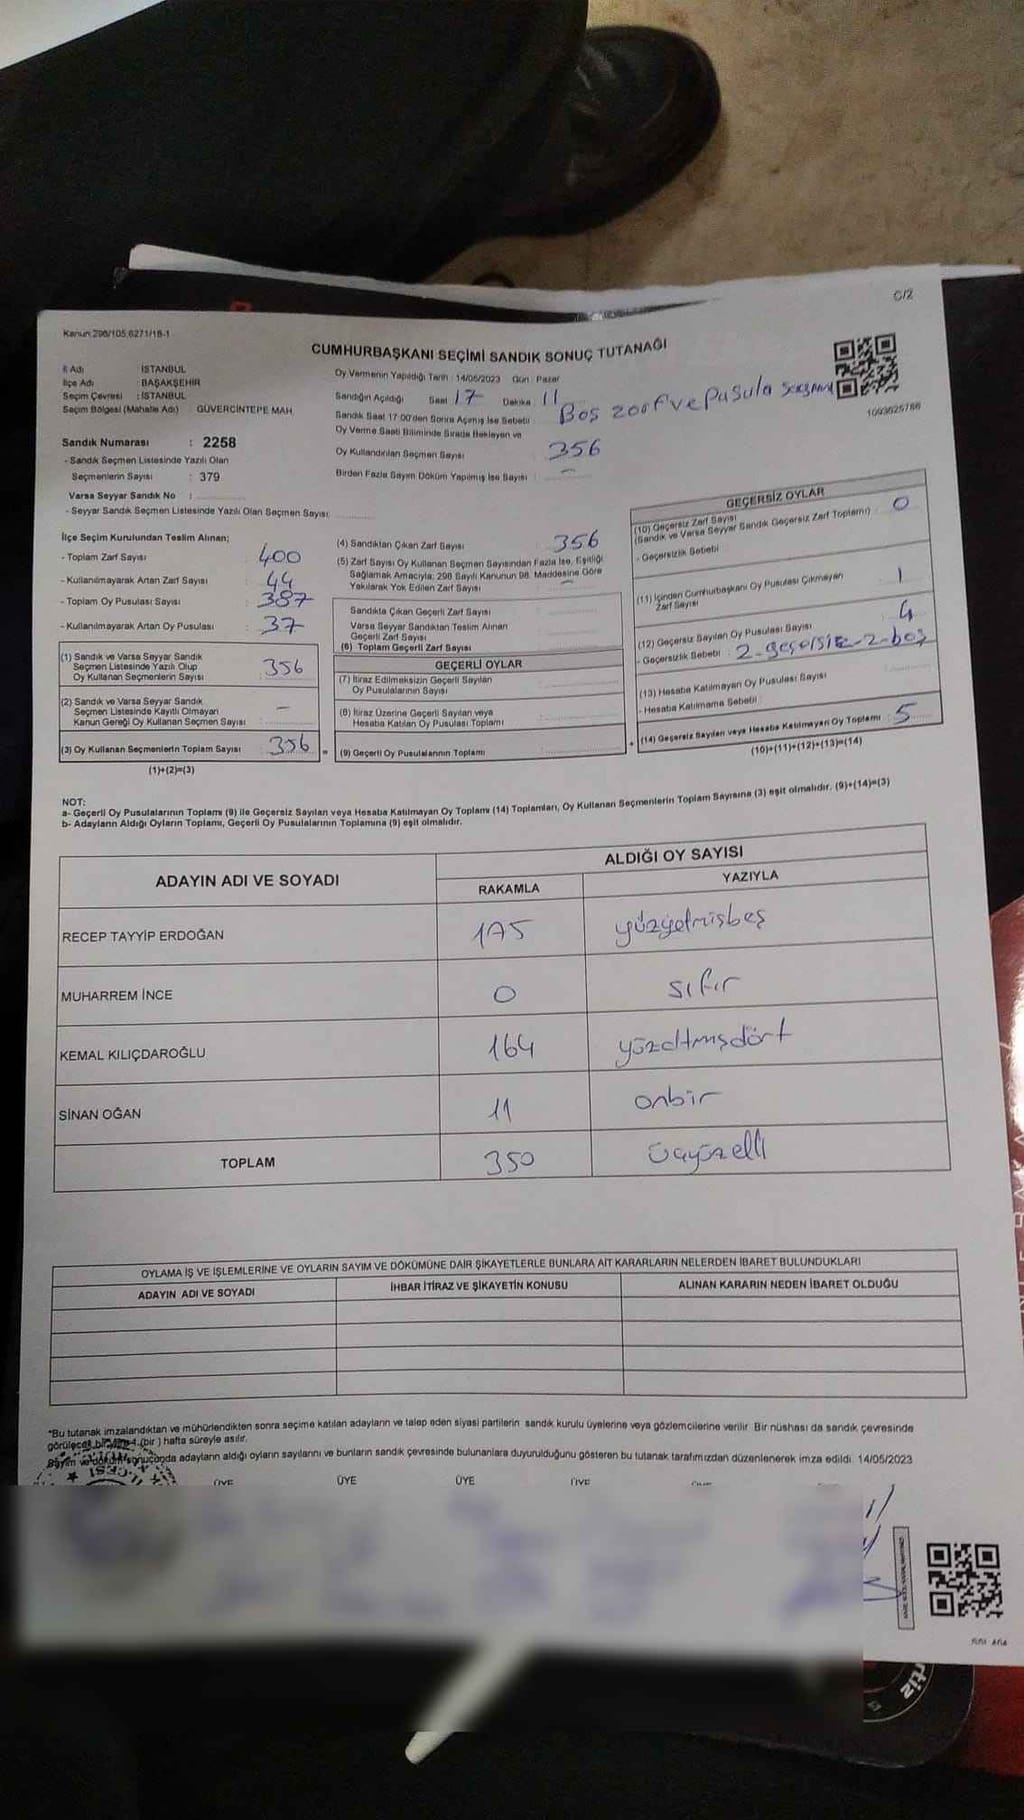 C/2
Kanun:298/105,6271/18-1
CUMHURBAŞKANI SEÇİMİ SANDIK SONUÇ TUTANAĞI
İl Adı İSTANBUL
İlçe Adı BAŞAKŞEHİR
Seçim Çevresi : İSTANBUL
Seçim Bölgesi (Mahalle Adı) : GÜVERCİNTEPE MAH.
Oy Vermenin Yapıldığı Tarih : 14/05/2023 Gün : Pazar
Sandığın Açıldığı Saat 17 Dakika 11
Sandık Saat 17:00'den Sonra Açımış İse Sebebi : Boş zarf ve Pusula sayımı
Oy Verme Saati Bitiminde Sırada Bekleyen ve
Oy Kullandırılan Seçmen Sayısı 356
Birden Fazla Sayım Döküm Yapılmış İse Sayısı : –
1093625786
Sandık Numarası : 2258
- Sandık Seçmen Listesinde Yazılı Olan
Seçmenlerin Sayısı : 379
Varsa Seyyar Sandık No :
- Seyyar Sandık Seçmen Listesinde Yazılı Olan Seçmen Sayısı:
İlçe Seçim Kurulundan Teslim Alınan;
- Toplam Zarf Sayısı 400
- Kullanılmayarak Artan Zarf Sayısı 44
- Toplam Oy Pusulası Sayısı 387
- Kullanılmayarak Artan Oy Pusulası 37
(1) Sandık ve Varsa Seyyar Sandık
Seçmen Listesinde Yazılı Olup
Oy Kullanan Seçmenlerin Sayısı 356
(2) Sandık ve Varsa Seyyar Sandık
Seçmen Listesinde Kayıtlı Olmayan
Kanun Gereği Oy Kullanan Seçmen Sayısı –
(3) Oy Kullanan Seçmenlerin Toplam Sayısı : 356
(1)+(2)=(3)
(4) Sandıktan Çıkan Zarf Sayısı 356
(5) Zarf Sayısı Oy Kullanan Seçmen Sayısından Fazla İse, Eşitliği
Sağlamak Amacıyla; 298 Sayılı Kanunun 98. Maddesine Göre
Yakılarak Yok Edilen Zarf Sayısı : –
Sandıkta Çıkan Geçerli Zarf Sayısı
Varsa Seyyar Sandıktan Teslim Alınan
Geçerli Zarf Sayısı
(6) Toplam Geçerli Zarf Sayısı
GEÇERLİ OYLAR
(7) İtiraz Edilmeksizin Geçerli Sayılan
Oy Pusulalarının Sayısı
(8) İtiraz Üzerine Geçerli Sayılan veya
Hesaba Katılan Oy Pusulası Toplamı
= (9) Geçerli Oy Pusulalarının Toplamı :
GEÇERSİZ OYLAR
(10) Geçersiz Zarf Sayısı
(Sandık ve Varsa Seyyar Sandık Geçersiz Zarf Toplamı) 0
- Geçersizlik Sebebi
(11) İçinden Cumhurbaşkanı Oy Pusulası Çıkmayan
Zarf Sayısı 1
(12) Geçersiz Sayılan Oy Pusulası Sayısı 4
- Geçersizlik Sebebi : 2-geçersiz-2-boş
(13) Hesaba Katılmayan Oy Pusulası Sayısı
- Hesaba Katılmama Sebebi :
+ (14) Geçersiz Sayılan veya Hesaba Katılmayan Oy Toplamı : 5
(10)+(11)+(12)+(13)=(14)
NOT:
a- Geçerli Oy Pusulalarının Toplamı (9) ile Geçersiz Sayılan veya Hesaba Katılmayan Oy Toplamı (14) Toplamları, Oy Kullanan Seçmenlerin Toplam Sayısına (3) eşit olmalıdır. (9)+(14)=(3)
b- Adayların Aldığı Oyların Toplamı, Geçerli Oy Pusulalarının Toplamına (9) eşit olmalıdır.
ADAYIN ADI VE SOYADI ALDIĞI OY SAYISI
RAKAMLA YAZIYLA
RECEP TAYYİP ERDOĞAN 175 yüzyetmişbeş
MUHARREM İNCE 0 sıfır
KEMAL KILIÇDAROĞLU 164 yüzaltmışdört
SİNAN OĞAN 11 onbir
TOPLAM 350 üçyüzelli
OYLAMA İŞ VE İŞLEMLERİNE VE OYLARIN SAYIM VE DÖKÜMÜNE DAİR ŞİKAYETLERLE BUNLARA AİT KARARLARIN NELERDEN İBARET BULUNDUKLARI
ADAYIN ADI VE SOYADI İHBAR İTİRAZ VE ŞİKAYETİN KONUSU ALINAN KARARIN NEDEN İBARET OLDUĞU
*Bu tutanak imzalandıktan ve mühürlendikten sonra seçime katılan adayların ve talep eden siyasi partilerin sandık kurulu üyelerine veya gözlemcilerine verilir. Bir nüshası da sandık çevresinde
görülecek bir yere 1 (bir) hafta süreyle asılır.
Sayım ve döküm sonucunda adayların aldığı oyların sayılarını ve bunların sandık çevresinde bulunanlara duyurulduğunu gösteren bu tutanak tarafımızdan düzenlenerek imza edildi. 14/05/2023
ÜYE ÜYE ÜYE ÜYE